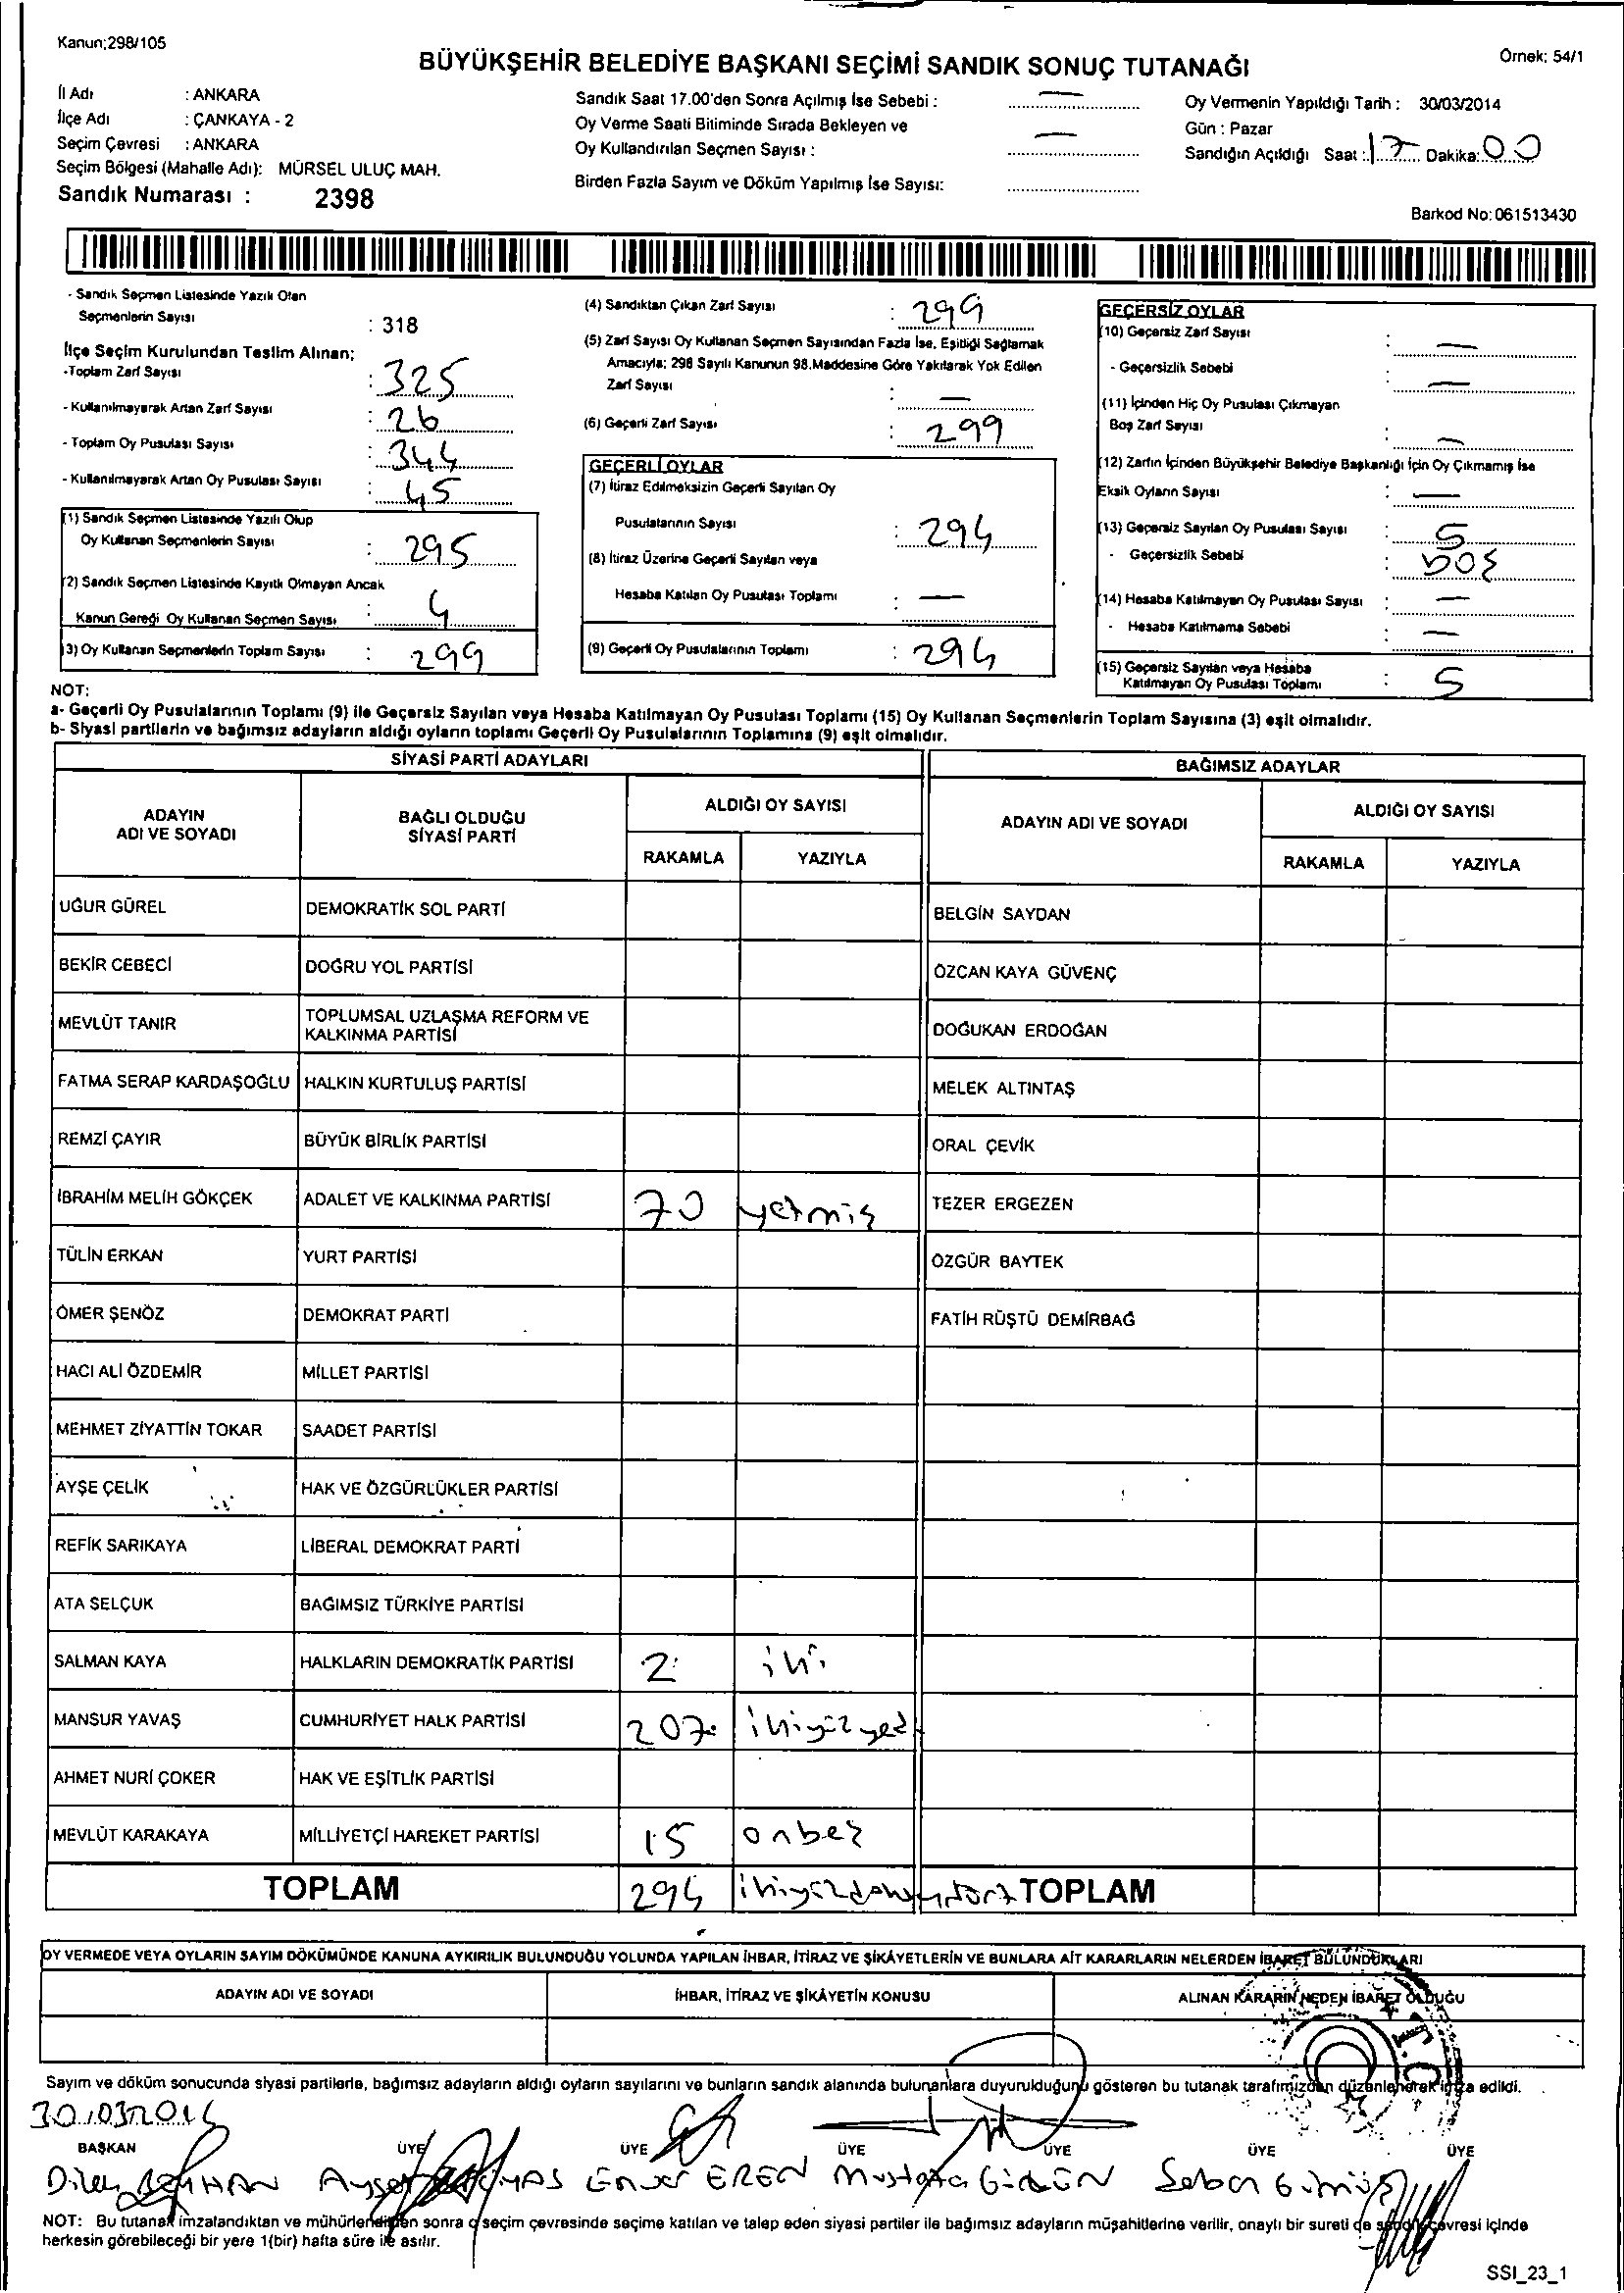 Kanun;298/105
BÜYÜKŞEHİR BELEDİYE BAŞKANI SEÇİMİ SANDIK SONUÇ TUTANAĞI
Örnek; 54/1
İl Adı : ANKARA
İlçe Adı : ÇANKAYA - 2
Seçim Çevresi : ANKARA
Seçim Bölgesi (Mahalle Adı): MÜRSEL ULUÇ MAH.
Sandık Numarası : 2398
Sandık Saat 17.00'den Sonra Açılmış İse Sebebi : —
Oy Verme Saati Bitiminde Sırada Bekleyen ve
Oy Kullandırılan Seçmen Sayısı : —
Birden Fazla Sayım ve Döküm Yapılmış İse Sayısı:
Oy Vermenin Yapıldığı Tarih : 30/03/2014
Gün : Pazar
Sandığın Açıldığı Saat : 17 Dakika: 00
Barkod No: 061513430
- Sandık Seçmen Listesinde Yazılı Olan
Seçmenlerin Sayısı : 318
İlçe Seçim Kurulundan Teslim Alınan;
-Toplam Zarf Sayısı : 325
- Kullanılmayarak Artan Zarf Sayısı : 26
- Toplam Oy Pusulası Sayısı : 344
- Kullanılmayarak Artan Oy Pusulası Sayısı : 45
(1) Sandık Seçmen Listesinde Yazılı Olup
Oy Kullanan Seçmenlerin Sayısı : 295
(2) Sandık Seçmen Listesinde Kayıtlı Olmayan Ancak
Kanun Gereği Oy Kullanan Seçmen Sayısı : 4
(3) Oy Kullanan Seçmenlerin Toplam Sayısı : 299
(4) Sandıktan Çıkan Zarf Sayısı : 299
(5) Zarf Sayısı Oy Kullanan Seçmen Sayısından Fazla İse, Eşitliği Sağlamak
Amacıyla; 298 Sayılı Kanunun 98.Maddesine Göre Yakılarak Yok Edilen
Zarf Sayısı : —
(6) Geçerli Zarf Sayısı : 299
GEÇERLİ OYLAR
(7) İtiraz Edilmeksizin Geçerli Sayılan Oy
Pusulalarının Sayısı : 294
(8) İtiraz Üzerine Geçerli Sayılan veya
Hesaba Katılan Oy Pusulası Toplamı : —
(9) Geçerli Oy Pusulalarının Toplamı : 294
GEÇERSİZ OYLAR
(10) Geçersiz Zarf Sayısı : —
- Geçersizlik Sebebi : —
(11) İçinden Hiç Oy Pusulası Çıkmayan
Boş Zarf Sayısı : —
(12) Zarfın İçinden Büyükşehir Belediye Başkanlığı İçin Oy Çıkmamış İse
Eksik Oyların Sayısı : —
(13) Geçersiz Sayılan Oy Pusulası Sayısı : 5
- Geçersizlik Sebebi : boş
(14) Hesaba Katılmayan Oy Pusulası Sayısı : —
- Hesaba Katılmama Sebebi : —
(15) Geçersiz Sayılan veya Hesaba
Katılmayan Oy Pusulası Toplamı : 5
NOT:
a- Geçerli Oy Pusulalarının Toplamı (9) ile Geçersiz Sayılan veya Hesaba Katılmayan Oy Pusulası Toplamı (15) Oy Kullanan Seçmenlerin Toplam Sayısına (3) eşit olmalıdır.
b- Siyasi partilerin ve bağımsız adayların aldığı oyların toplamı Geçerli Oy Pusulalarının Toplamına (9) eşit olmalıdır.
SİYASİ PARTİ ADAYLARI
BAĞIMSIZ ADAYLAR
ADAYIN ADI VE SOYADI
BAĞLI OLDUĞU SİYASİ PARTİ
ALDIĞI OY SAYISI
RAKAMLA YAZIYLA
ADAYIN ADI VE SOYADI
ALDIĞI OY SAYISI
RAKAMLA YAZIYLA
UĞUR GÜREL DEMOKRATİK SOL PARTİ BELGİN SAYDAN
BEKİR CEBECİ DOĞRU YOL PARTİSİ ÖZCAN KAYA GÜVENÇ
MEVLÜT TANIR TOPLUMSAL UZLAŞMA REFORM VE KALKINMA PARTİSİ DOĞUKAN ERDOĞAN
FATMA SERAP KARDAŞOĞLU HALKIN KURTULUŞ PARTİSİ MELEK ALTINTAŞ
REMZİ ÇAYIR BÜYÜK BİRLİK PARTİSİ ORAL ÇEVİK
İBRAHİM MELİH GÖKÇEK ADALET VE KALKINMA PARTİSİ 70 yetmiş TEZER ERGEZEN
TÜLİN ERKAN YURT PARTİSİ ÖZGÜR BAYTEK
ÖMER ŞENÖZ DEMOKRAT PARTİ FATİH RÜŞTÜ DEMİRBAĞ
HACI ALİ ÖZDEMİR MİLLET PARTİSİ
MEHMET ZİYATTİN TOKAR SAADET PARTİSİ
AYŞE ÇELİK HAK VE ÖZGÜRLÜKLER PARTİSİ
REFİK SARIKAYA LİBERAL DEMOKRAT PARTİ
ATA SELÇUK BAĞIMSIZ TÜRKİYE PARTİSİ
SALMAN KAYA HALKLARIN DEMOKRATİK PARTİSİ 2 iki
MANSUR YAVAŞ CUMHURİYET HALK PARTİSİ 207 ikiyüzyedi
AHMET NURİ ÇOKER HAK VE EŞİTLİK PARTİSİ
MEVLÜT KARAKAYA MİLLİYETÇİ HAREKET PARTİSİ 15 onbeş
TOPLAM 294 ikiyüzdoksandört TOPLAM
OY VERMEDE VEYA OYLARIN SAYIM DÖKÜMÜNDE KANUNA AYKIRILIK BULUNDUĞU YOLUNDA YAPILAN İHBAR, İTİRAZ VE ŞİKÂYETLERİN VE BUNLARA AİT KARARLARIN NELERDEN İBARET BULUNDUKLARI
ADAYIN ADI VE SOYADI İHBAR, İTİRAZ VE ŞİKÂYETİN KONUSU ALINAN KARARIN NEDEN İBARET OLDUĞU
T.C
Sayım ve döküm sonucunda siyasi partilerle, bağımsız adayların aldığı oyların sayılarını ve bunların sandık alanında bulunanlara duyurulduğunu gösteren bu tutanak tarafımızdan düzenlenerek imza edildi.
30.03.2014
BAŞKAN ÜYE ÜYE ÜYE ÜYE ÜYE ÜYE
Dilek Aysel Enver EREN Mustafa Seban Gümüş
NOT: Bu tutanak imzalandıktan ve mühürlendikten sonra o seçim çevresinde seçime katılan ve talep eden siyasi partiler ile bağımsız adayların müşahitlerine verilir, onaylı bir sureti de sandık çevresi içinde
herkesin görebileceği bir yere 1(bir) hafta süre ile asılır.
SSI_23_1